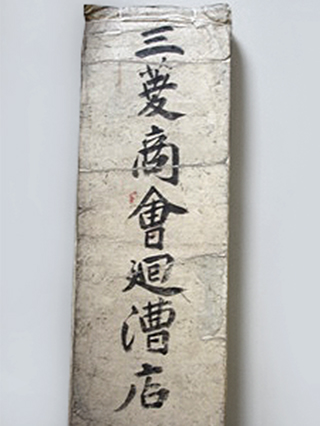 三菱商會廻漕店